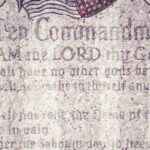 en Commandm
AM the LORD thy G
alt have no other gods be
not make to thyself any
not take the Name of
in vain
er the Sabbath day, to